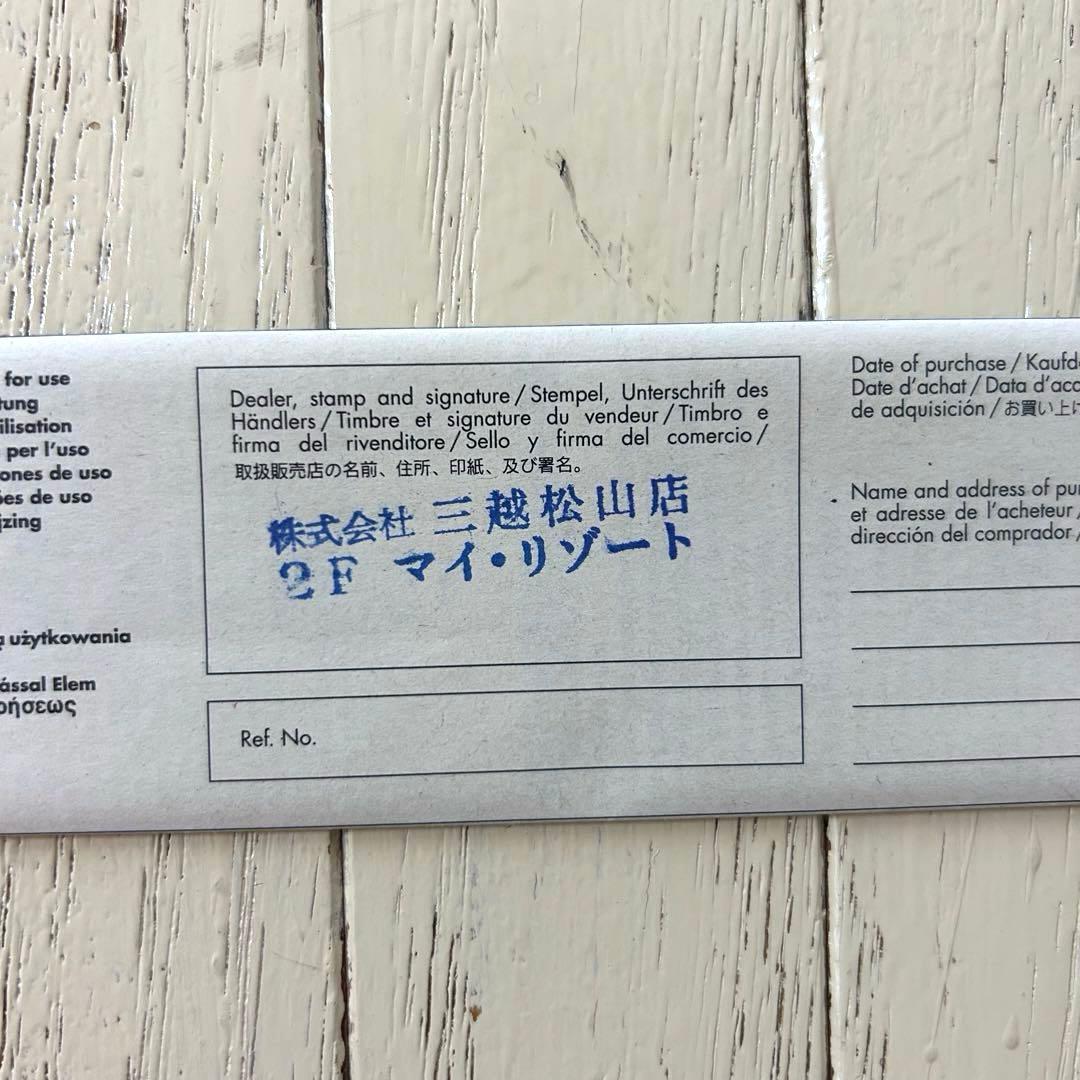 for use
tung
ilisation
per l'uso
ones de uso
ões de uso
jzing
użytkowania
ással Elem
ρήσεως
Dealer, stamp and signature / Stempel, Unterschrift des
Händlers / Timbre et signature du vendeur / Timbro e
firma del rivenditore / Sello y firma del comercio /
取扱販売店の名前、住所、印紙、及び署名。
株式会社 三越松山店
2F マイ・リゾート
Ref. No.
Date of purchase / Kaufd
Date d'achat / Data d'acq
de adquisición / お買い上げ
Name and address of pur
et adresse de l'acheteur /
dirección del comprador /